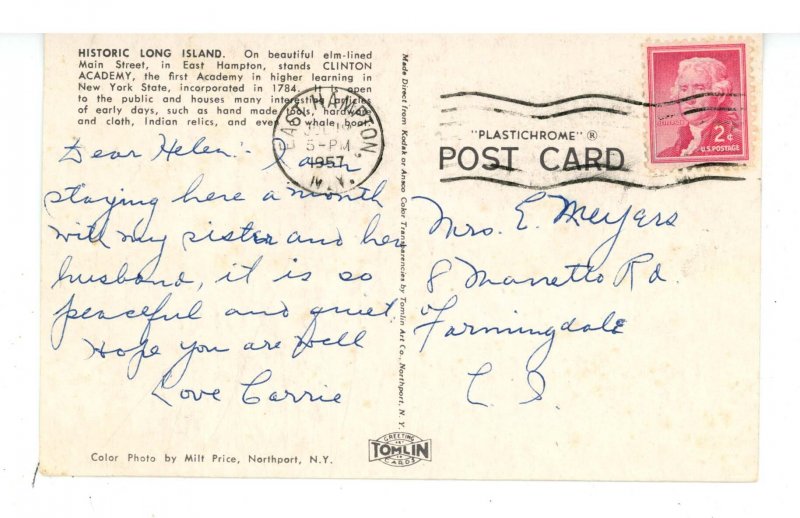 HISTORIC LONG ISLAND. On beautiful elm-lined
Main Street, in East Hampton, stands CLINTON
ACADEMY, the first Academy in higher learning in
New York State, incorporated in 1784. It is open
to the public and houses many interesting articles
of early days, such as hand made tools, hardware
and cloth, Indian relics, and even a whale boat.
Dear Helen: I am
staying here a month
with my sister and her
husband, it is so
peaceful and quiet.
Hope you are well
Love Carrie
Color Photo by Milt Price, Northport, N.Y.
Made Direct from Kodak or Ansco Color Transparencies by Tomlin Art Co., Northport, N. Y.
GREETING
TOMLIN
CARDS
EAST HAMPTON,
5-PM
1957
N.Y.
"PLASTICHROME" ®
POST CARD
2¢
U.S. POSTAGE
Mrs. E. Meyers
8 Manetto Rd.
Farmingdale
L I.